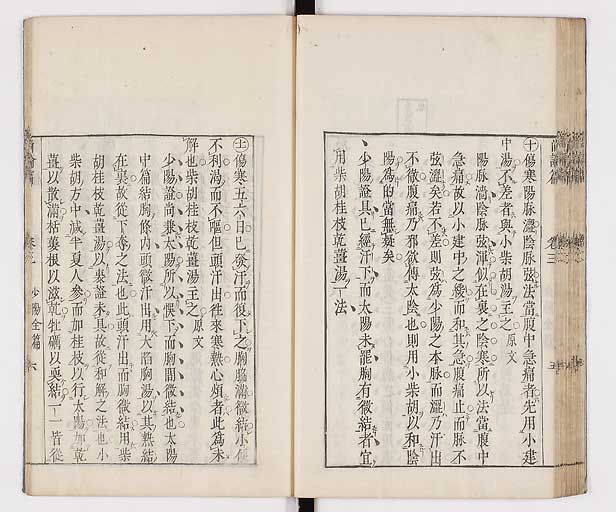 ㊉傷寒陽脉濇陰脉弦法當腹中急痛者先用小建
中湯不差者與小柴胡湯主之原文
陽脉濇陰脉弦渾似在裏之陰寒所以法當腹中
急痛故以小建中之緩而和其急腹痛止而脉不
弦濇矣若不差則弦爲少陽之本脉而濇乃汗出
不徹腹痛乃邪欲傳太陰也則用小柴胡以和陰
陽爲的當無疑矣
少陽證具已經汗下而太陽未罷胸有微結者宜
用柴胡桂枝乾薑湯一法
傷寒五六日已發汗而復下之胸脇滿微結小便
不利渴而不嘔但頭汗出往來寒熱心煩者此爲未
解也柴胡桂枝乾薑湯主之原文
少陽證尚兼太陽所以悞下而胸間微結也太陽
中篇結胸條內頭微汗出用大陷胸湯以其熱結
在裏故從下奪之法也此頭汗出而胸微結用柴
胡桂枝乾薑湯以裏證未具故從和解之法也小
柴胡方中減半夏人參而加桂枝以行太陽加乾
薑以散滿栝蔞根以滋乾牡礪以耎結一一皆從
少陽全篇 六
卷三